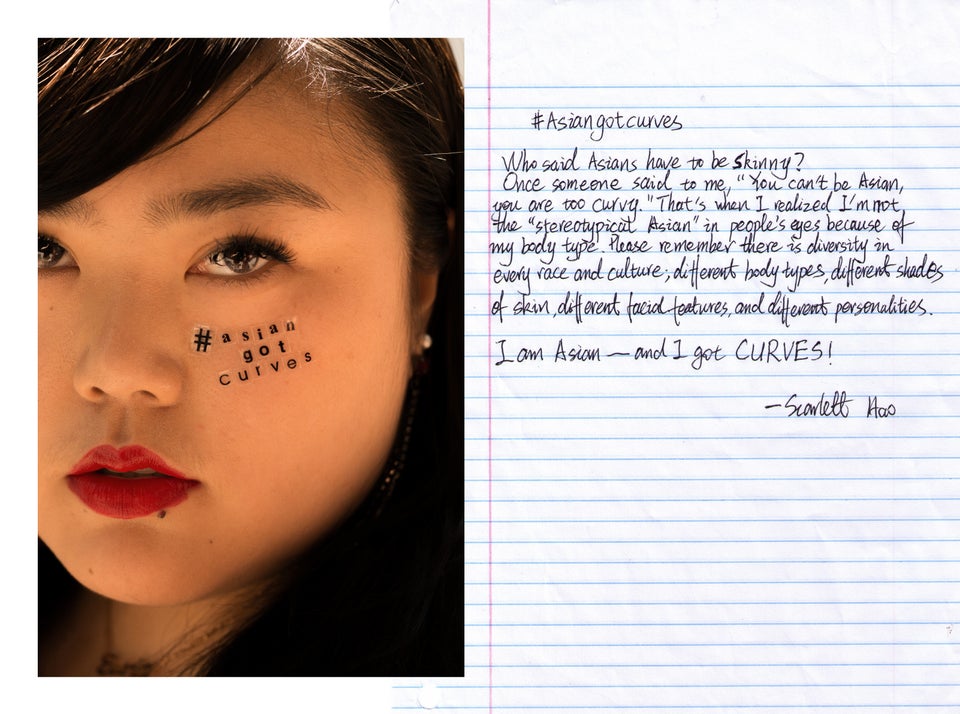 #asian
got
curves
#Asiangotcurves
Who said Asians have to be skinny?
Once someone said to me, "You can't be Asian,
you are too curvy." That's when I realized I'm not
the "stereotypical Asian" in people's eyes because of
my body type. Please remember there is diversity in
every race and culture; different body types, different shades
of skin, different facial features, and different personalities.
I am Asian — and I got CURVES!
— Scarlett Hao